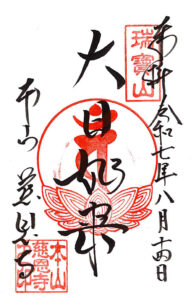 奉拝 令和七年八月十四日
瑞寶山
大日如来
本山 慈恩寺
本山
慈恩寺